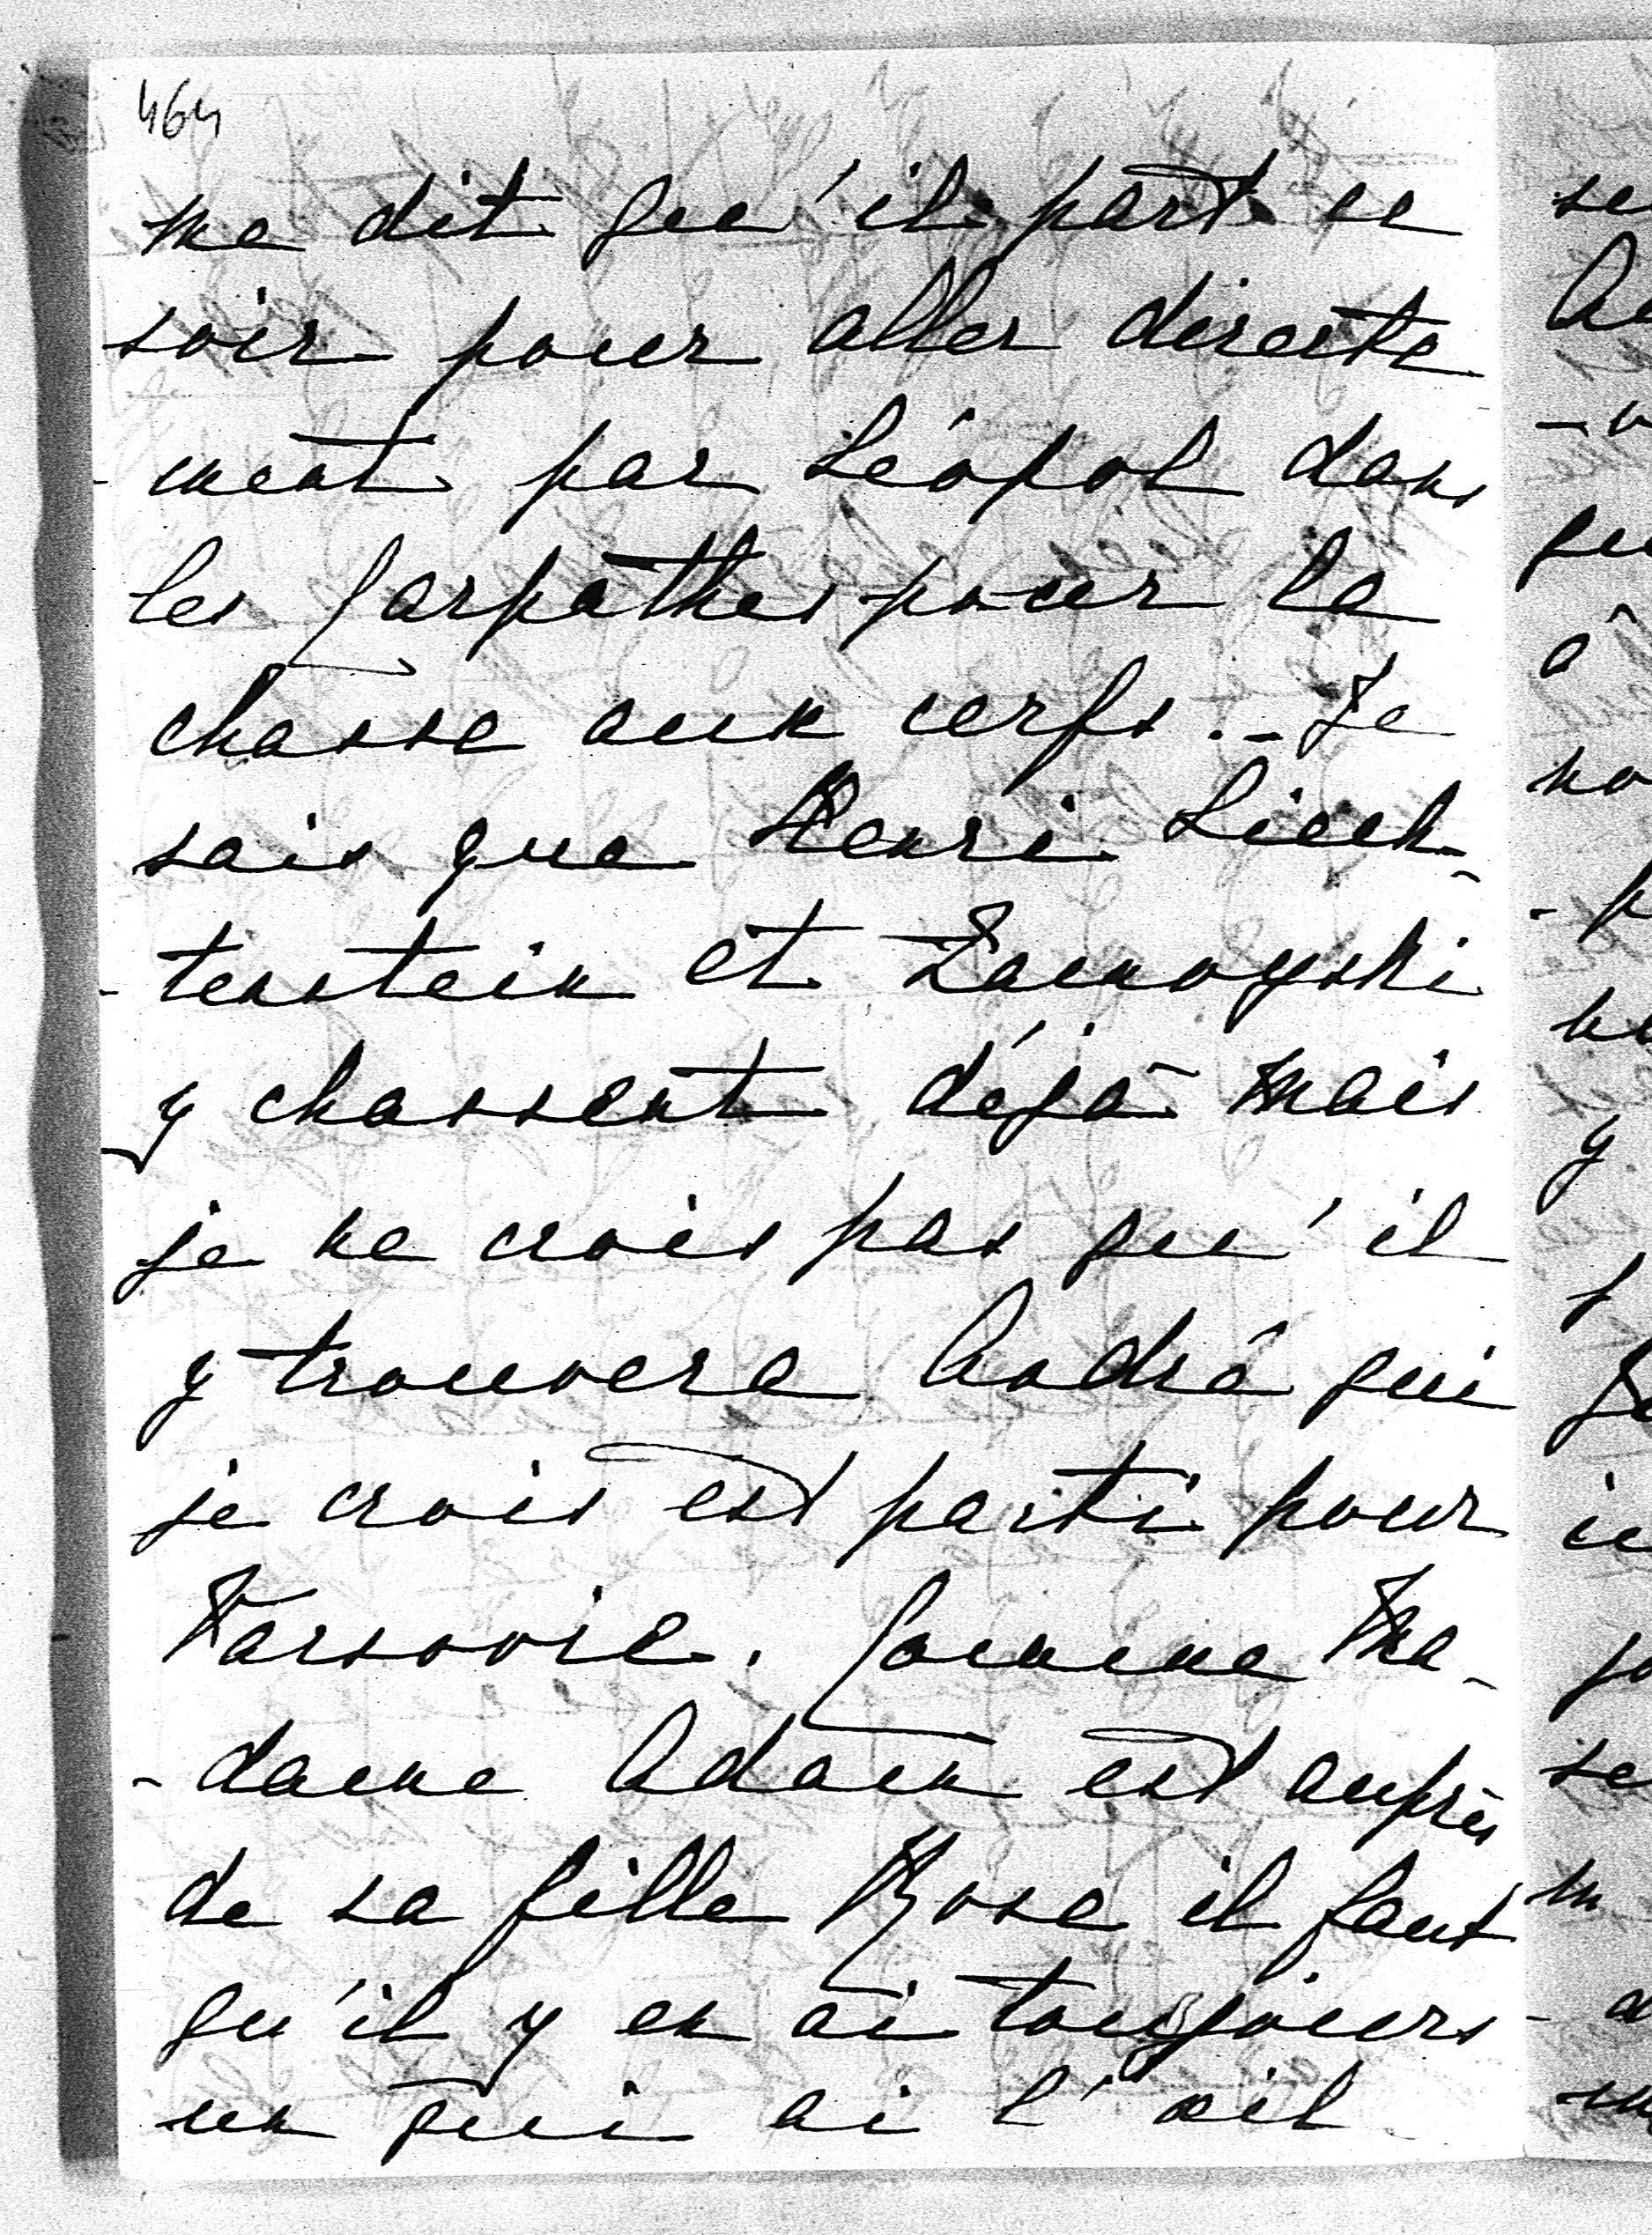 464
me dit qu'il part ce
soir pour aller directe
-ment par Léopol dans
les Carpathes pour la
chasse aux cerfs. - Je
sais que Henri Liech-
-tenstein et Zamoyski
y chassent déjà mais
je ne crois pas qu'il
y trouvera André qui
je crois est parti pour
Varsovie. Comme Ma-
-dame Adam est auprès
de sa fille Rose il faut
qu'il y en ai toujours
un qui ai l'œil